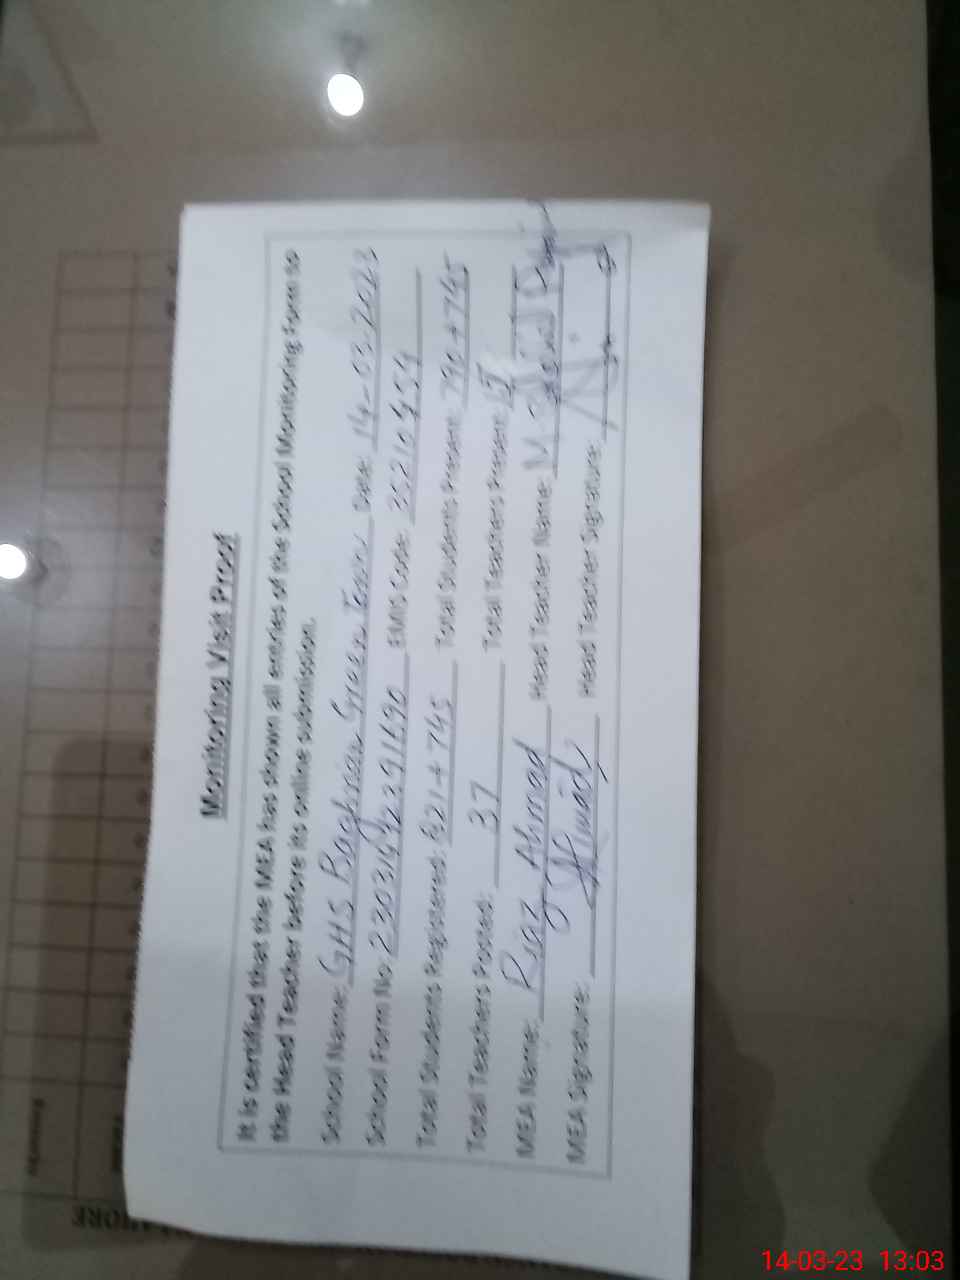 Monitoring Visit Proof
It is certified that the MEA has shown all entries of the School Monitoring Form to
the Head Teacher before its online submission.
School Name: GHS Baghrian Green Town Date: 14-03-2023
School Form No: EMIS Code: 35210454
Total Students Registered: 821+745 Total Students Present: 790+745
Total Teachers Posted: 37 Total Teachers Present:
MEA Name: Riaz Ahmad Head Teacher Name: M
MEA Signature: Head Teacher Signature:
LAHORE
14-03-23 13:03